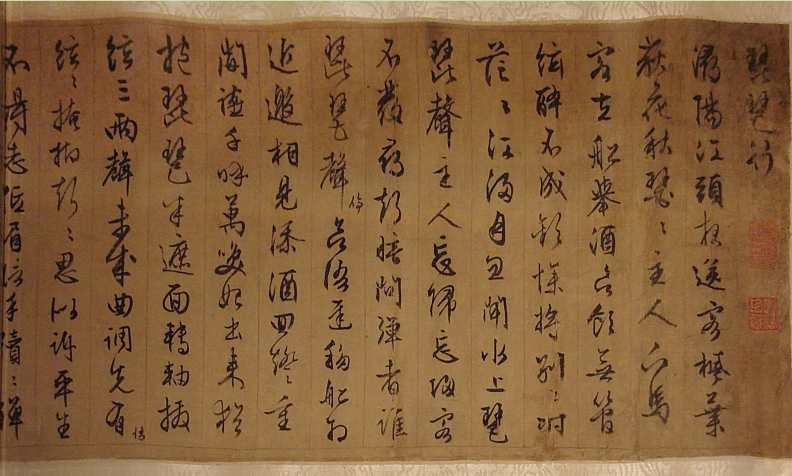 琵琶行
潯陽江頭夜送客楓葉
荻花秋瑟〻主人下馬
客在船舉酒欲飲無管
絃醉不成歡慘將別〻時
茫〻江浸月忽聞水上琵
琶聲主人忘歸忘歸客
不發尋聲暗問彈者誰
琵琶聲停欲語遲移船相
近邀相見添酒回燈〻重
開讌千呼萬喚始出來猶
抱琵琶半遮面轉軸撥
絃三兩聲未成曲調先有情
絃〻掩抑聲〻思似訴平生
不得志低眉信手續〻彈